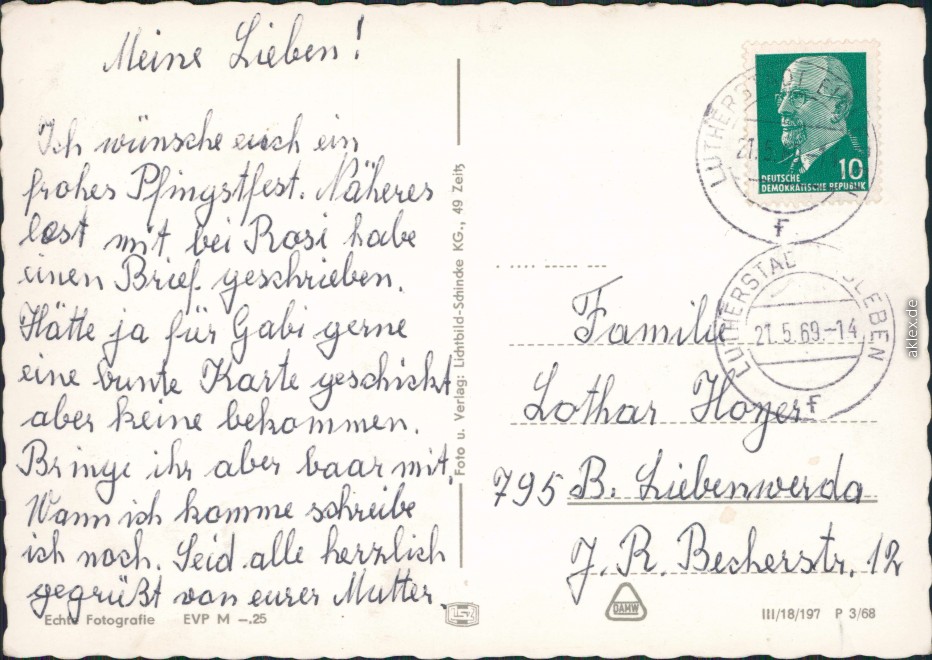 Meine Lieben!
Ich wünsche euch ein
frohes Pfingstfest. Näheres
lest mit bei Rosi habe
einen Brief geschrieben.
Hätte ja für Gabi gerne
eine bunte Karte geschickt
aber keine bekommen.
Bringe ihr aber baar mit.
Wann ich komme schreibe
ich noch. Seid alle herzlich
gegrüßt von eurer Mutter.
Echte Fotografie EVP M –.25
Foto u. Verlag: Lichtbild-Schincke KG., 49 Zeitz
LUTHERSTADT
21.5.
f
10
DEUTSCHE
DEMOKRATISCHE REPUBLIK
LUTHERSTADT EISLEBEN
21.5.69.-14
f
Familie
Lothar Hoyer
795 B. Liebenwerda
J. R. Becherstr. 12
DAMW
III/18/197 P 3/68
aklex.de